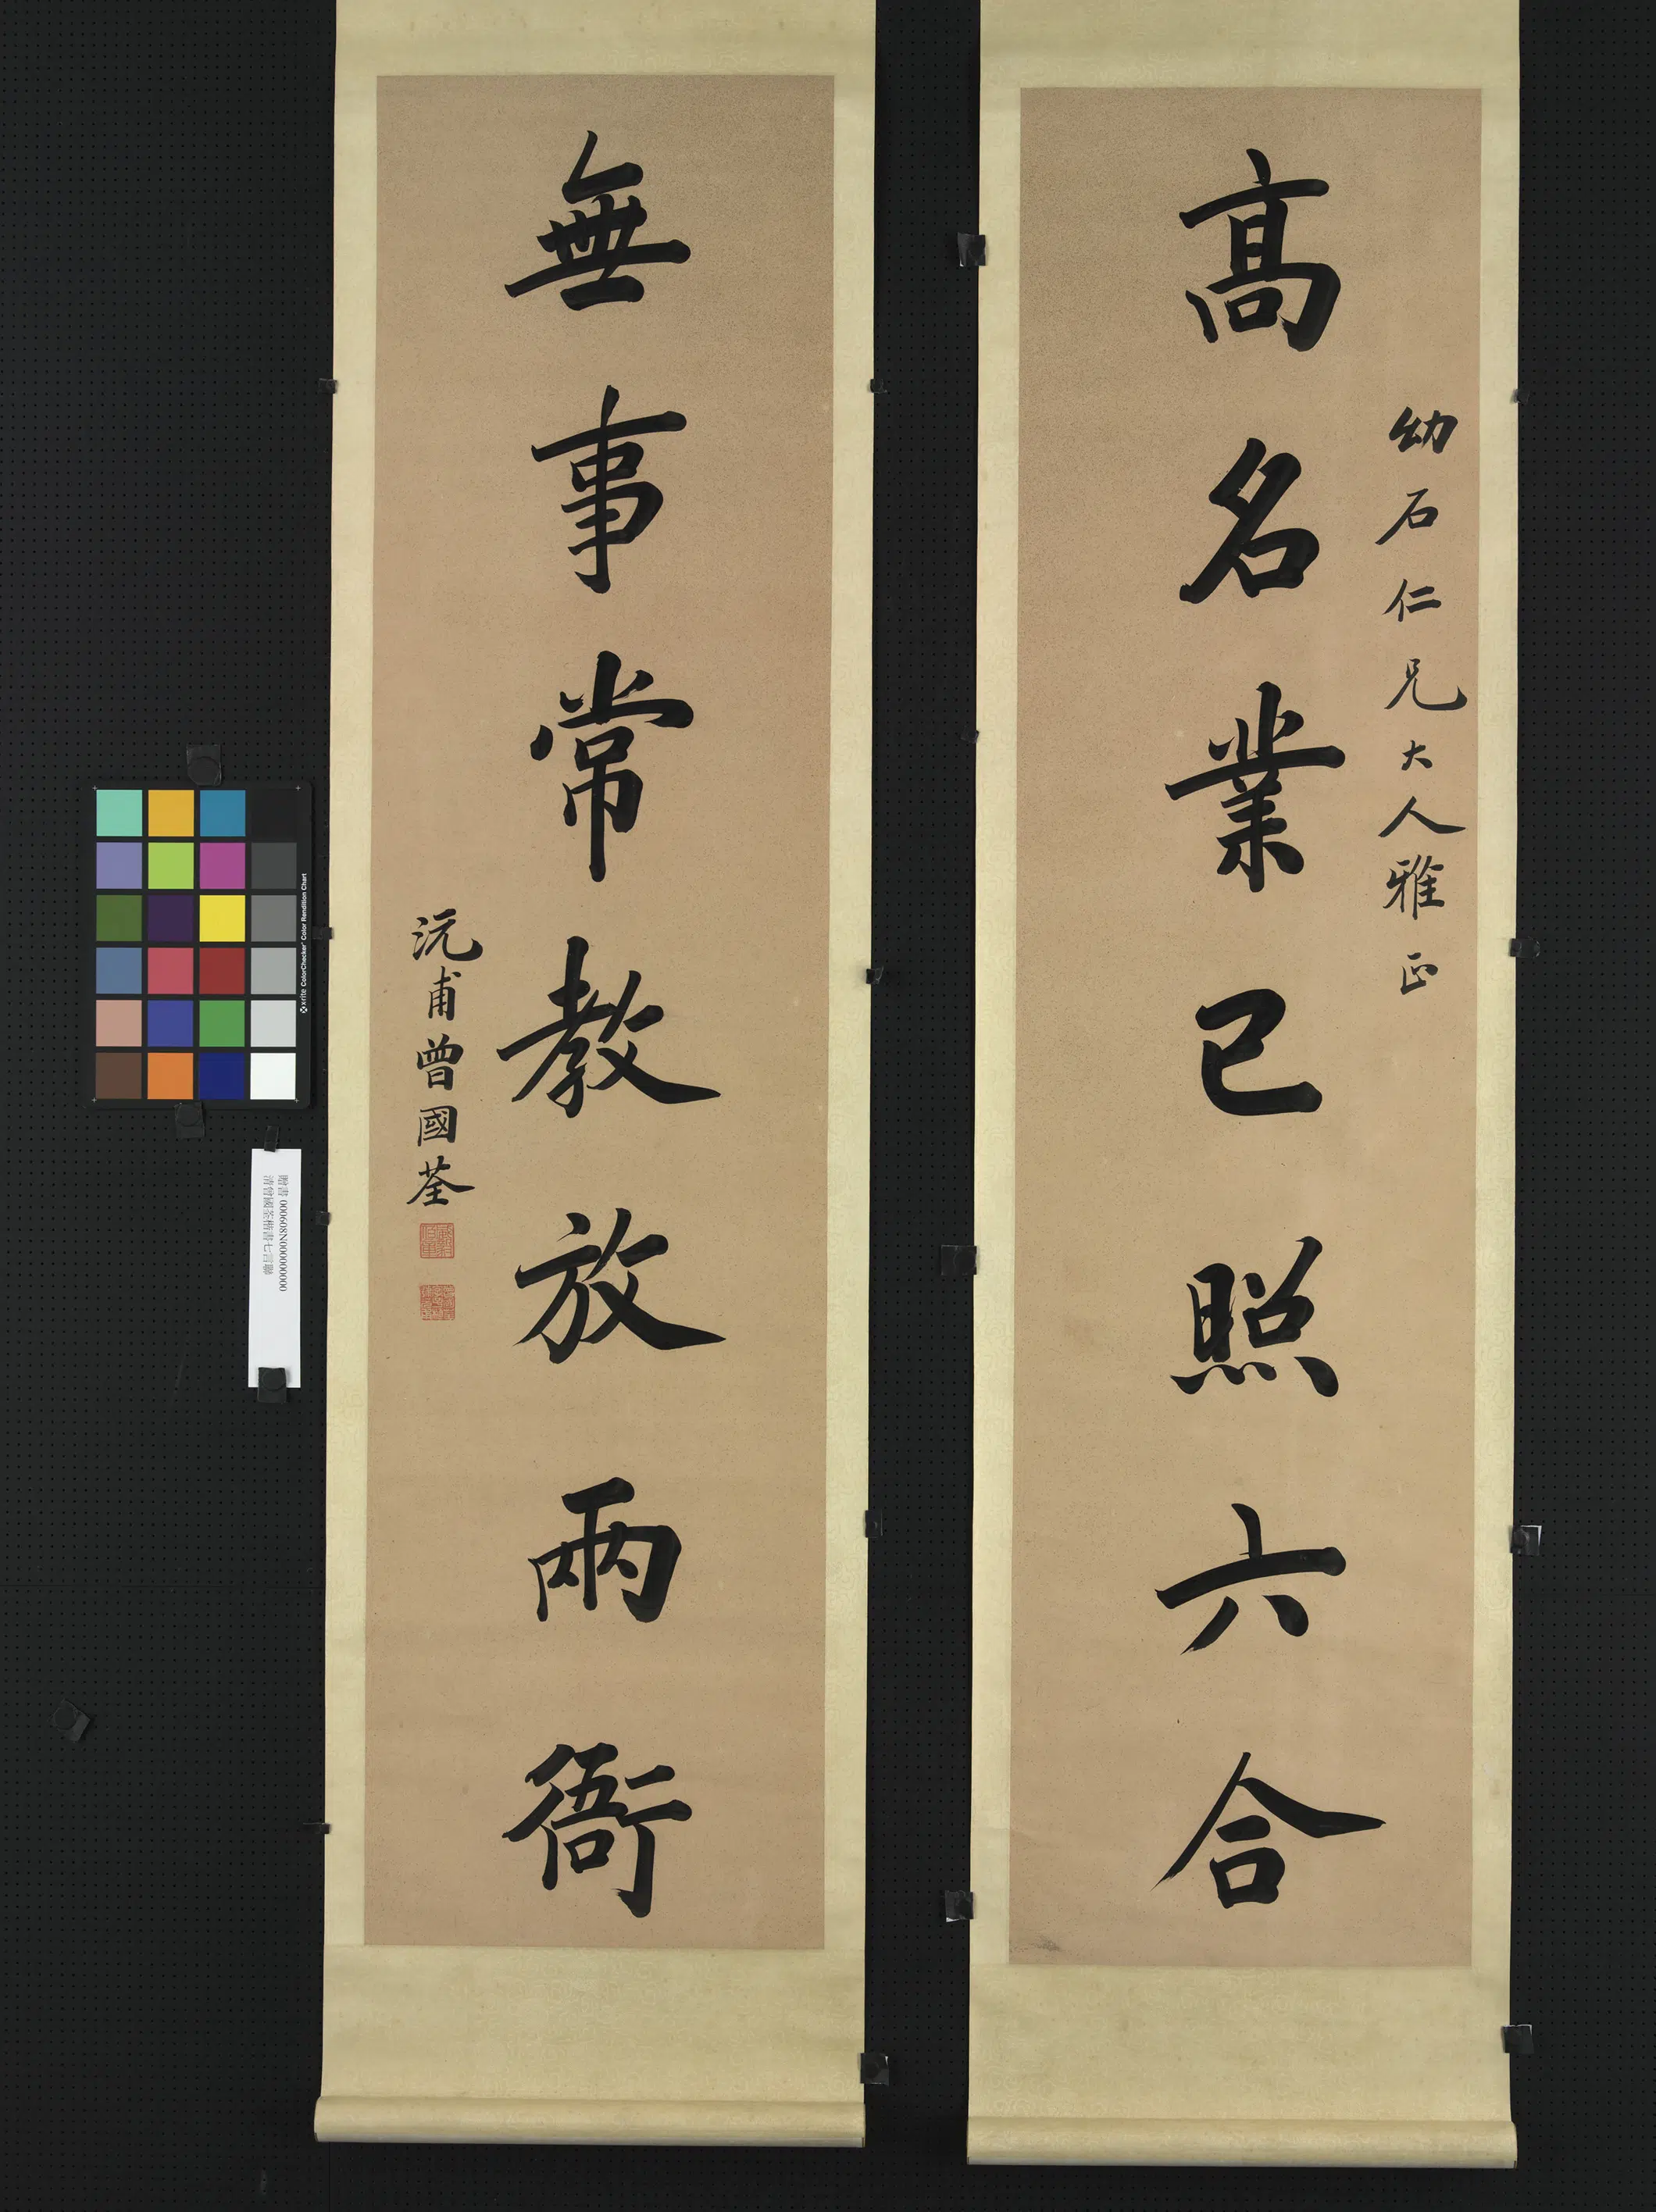 幼石仁兄大人雅正
高名業已照六合
無事常教放兩衙
沅甫曾國荃
贈書 000608N000000000
清曾國荃楷書七言聯
xrite ColorChecker Color Rendition Chart